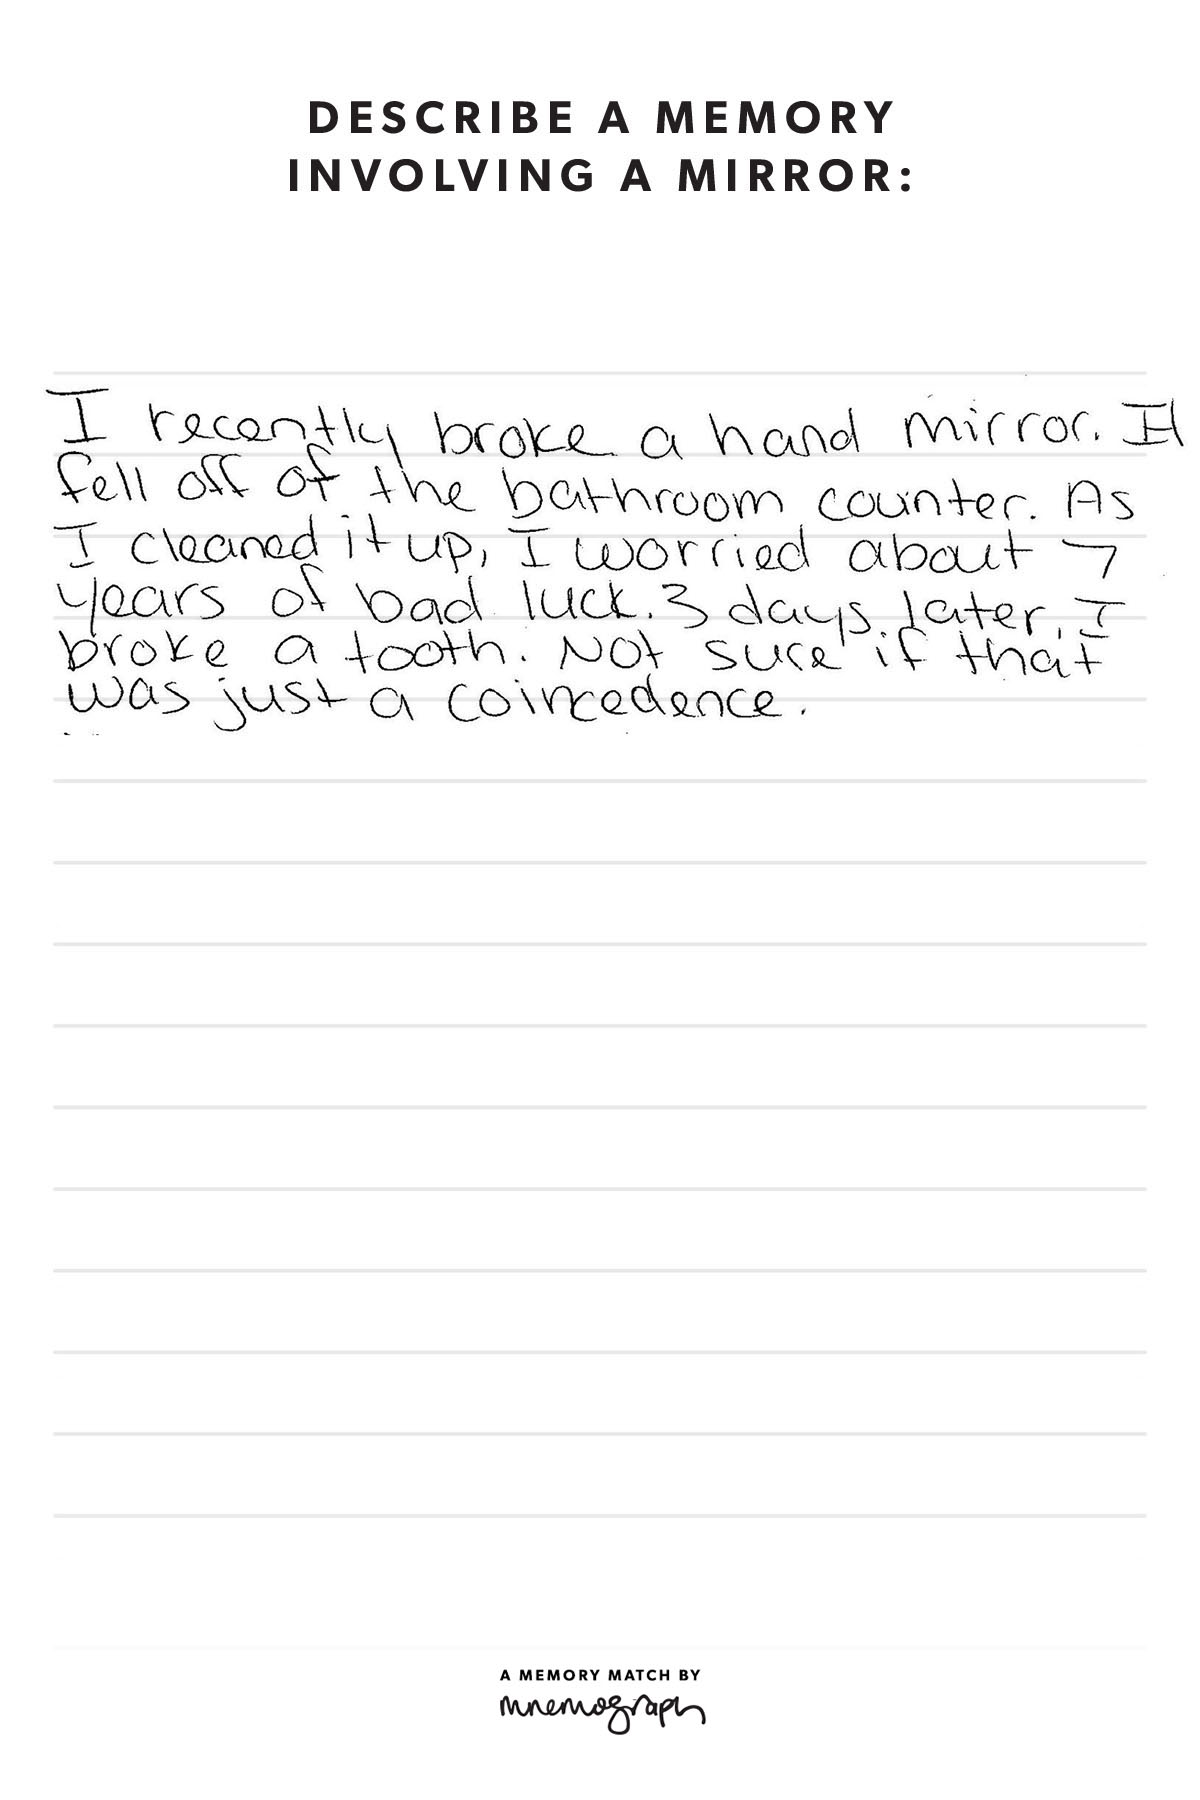 DESCRIBE A MEMORY
INVOLVING A MIRROR:
I recently broke a hand mirror. It
fell off of the bathroom counter. As
I cleaned it up, I worried about 7
years of bad luck. 3 days later, I
broke a tooth. Not sure if that
was just a coincedence.
A MEMORY MATCH BY
mnemograph